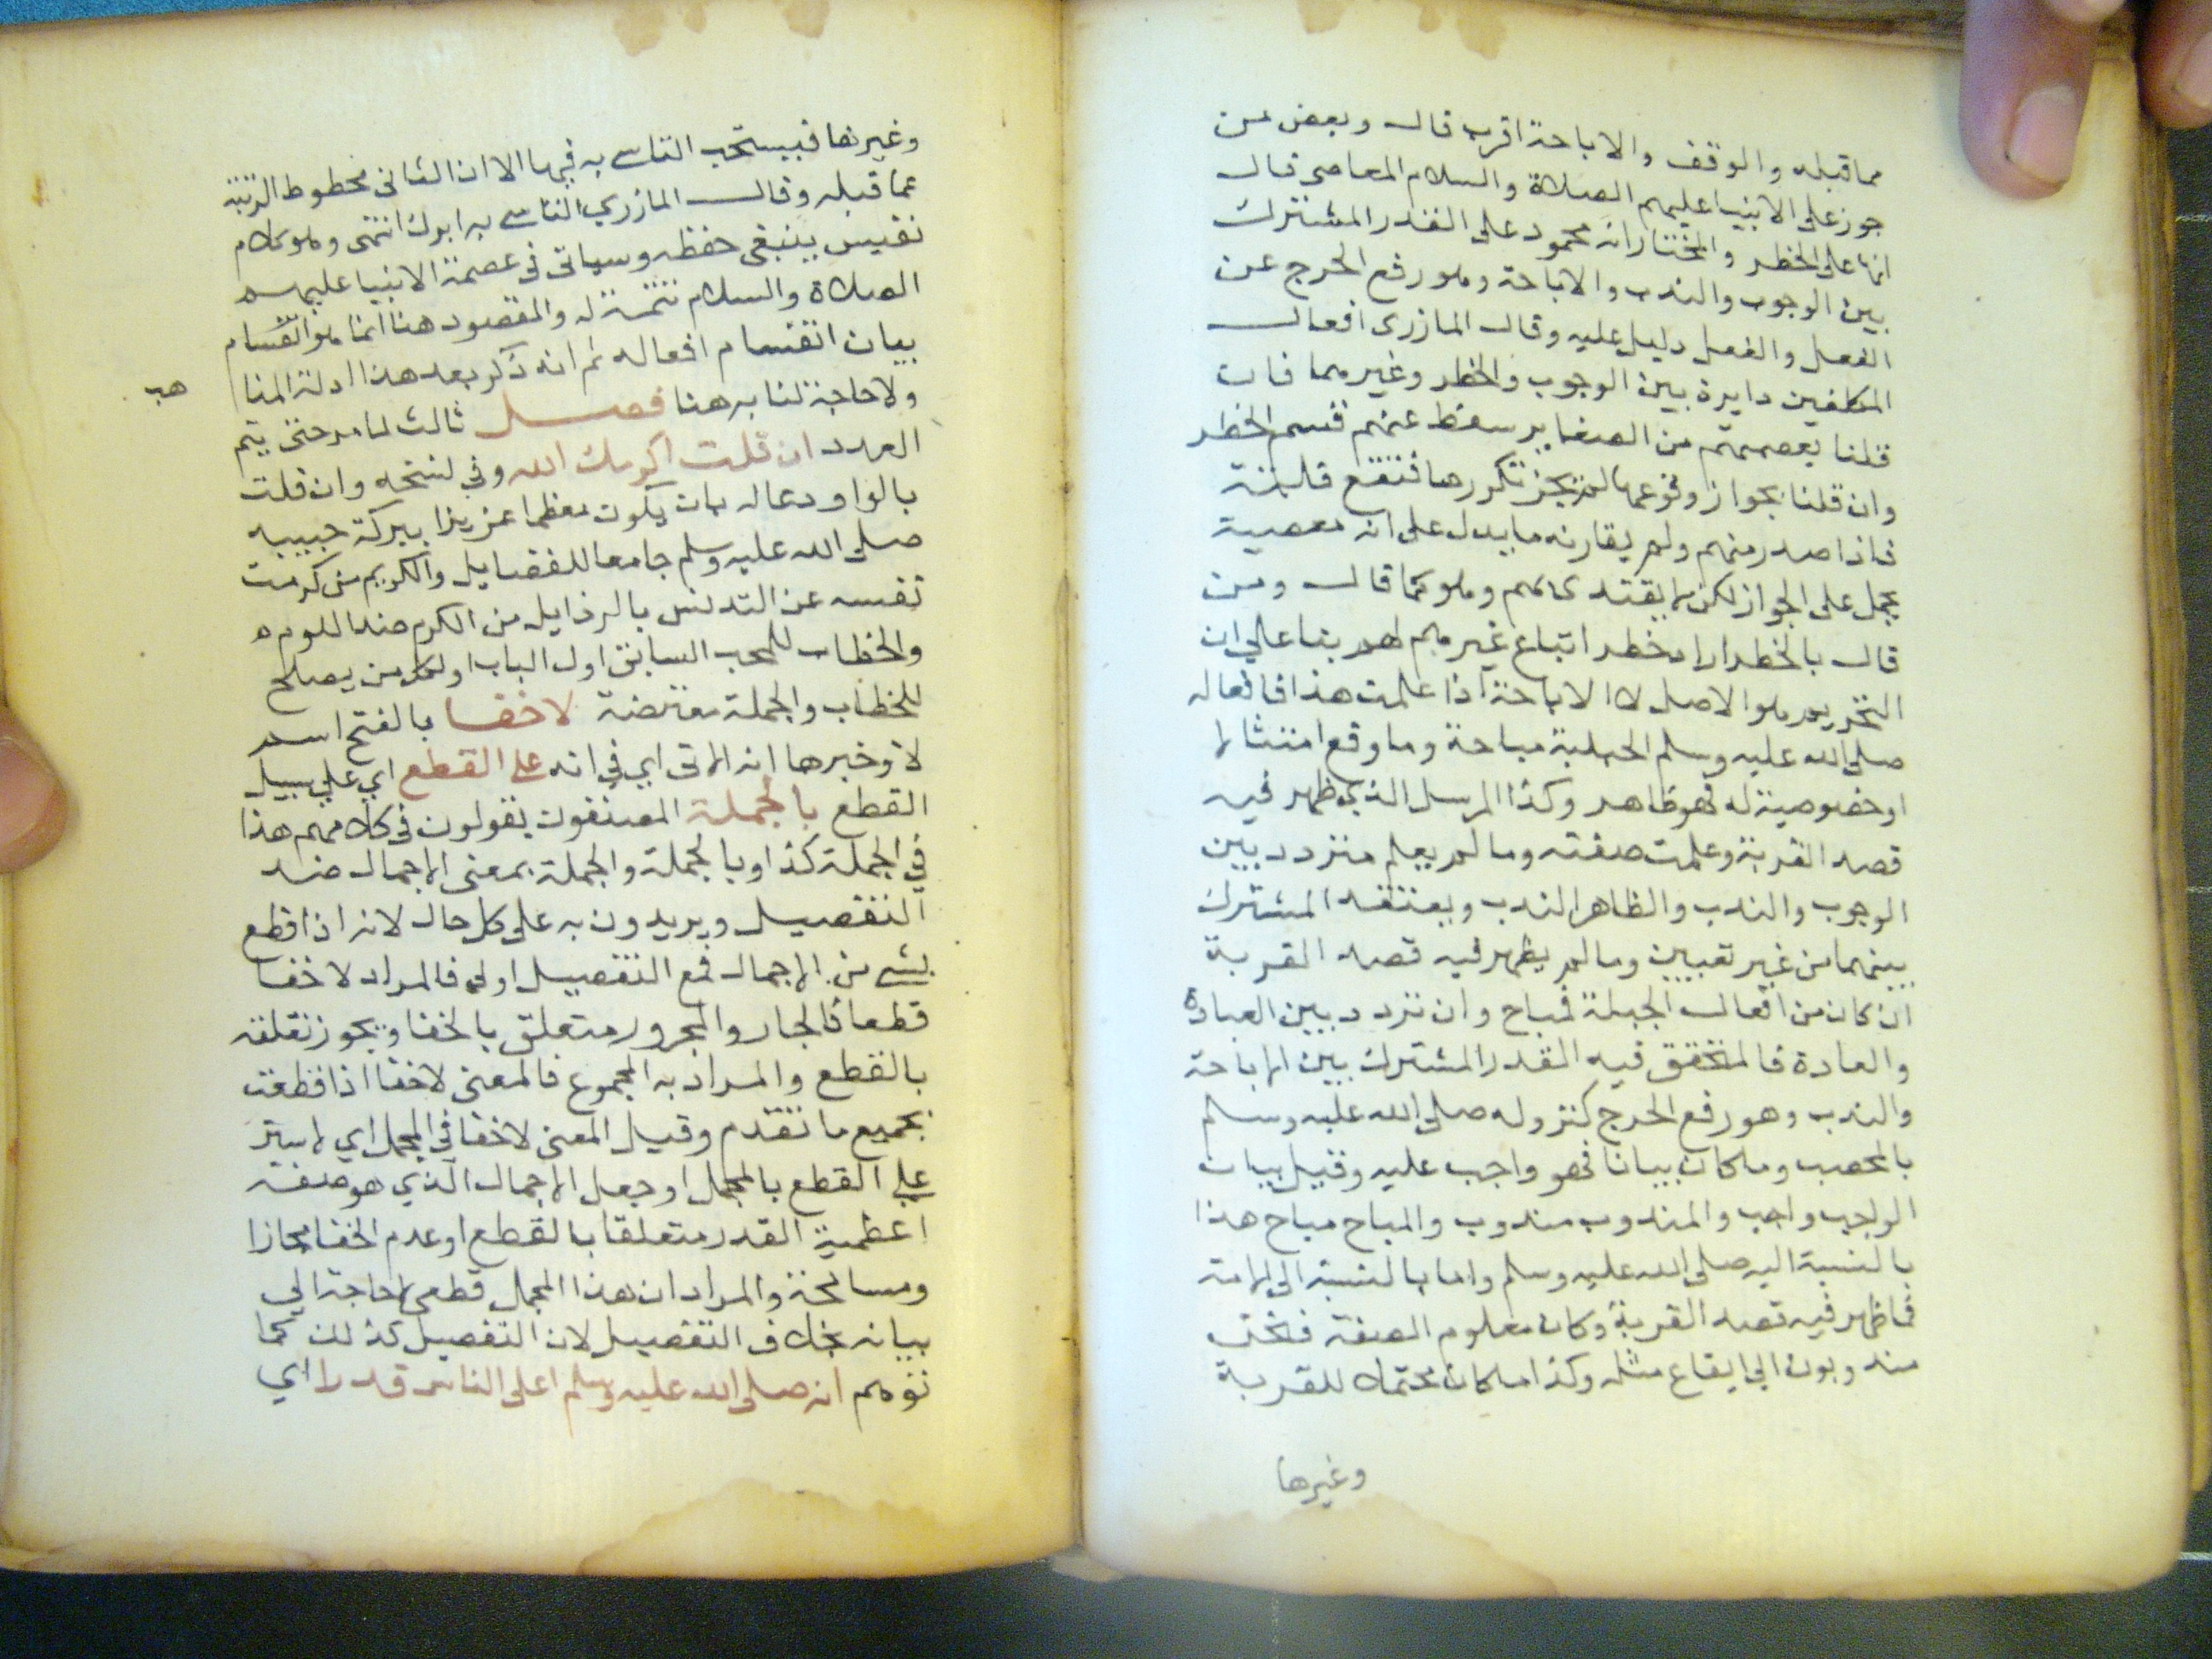 مما قبله والوقف والاباحة اقرب قال وبعض من
جوز على الانبيا عليهم الصلاة والسلام المعاصي قال
انها على الحظر والمختار انه محمول على القدر المشترك
بين الوجوب والندب والاباحة وهو رفع الحرج عن
الفعل والفعل دليل عليه وقال المازرى افعال
المكلفين دايرة بين الوجوب والحظر وغيرهما فان
قلنا بعصمتهم من الصغاير سقط عنهم قسم الحظر
وان قلنا بجواز وقوعها لم يجز تكررها فتقع فلتة
فاذا صدر منهم ولم يقارنه ما يدل على انه معصية
يحمل على الجواز لكن لا يقتد بهم وهو كما قال ومن
قال بالحظر اراد حظر اتباع غيرهم لهم بنا على ان
التحريم هو الاصل لا الاباحة اذا علمت هذا فافعاله
صلى الله عليه وسلم الجبلية مباحة وما وقع امتثالا
او خصوصية له فهو ظاهر وكذا المرسل الذي ظهر فيه
قصد القربة وعلمت صفته وما لم يعلم متردد بين
الوجوب والندب والظاهر الندب ويعتقد المشترك
بينهما من غير تعيين وما لم يظهر فيه قصد القربة
ان كان من افعال الجبلة فمباح وان تردد بين العبادة
والعادة فالمتحقق فيه القدر المشترك بين الاباحة
والندب وهو رفع الحرج كنزوله صلى الله عليه وسلم
بالمحصب وما كان بيانا فهو واجب عليه وقيل بيان
الواجب واجب والمندوب مندوب والمباح مباح هذا
بالنسبة اليه صلى الله عليه وسلم واما بالنسبة الى الامة
فما ظهر فيه قصد القربة وكان معلوم الصفة فنحن
مندوبون الي ايقاع مثله وكذا ما كان محتملا للقربة
وغيرها
وغيرها فيستحب التاسي به فيها الا ان الثانى محطوط الرتبة
عما قبله وقال المازري التاسي به ابرك انتهى وهو كلام
نفيس ينبغي حفظه وسياتى في عصمة الانبيا عليهم
الصلاة والسلام تتمة له والمقصود هنا انما هو انقسام
بيان انقسام افعاله ثم انه ذكر بعد هذا ادلة المنا
هب
ولا حاجة لنا به هنا فصل ثالث لما مر حتى يتم
العدد ان قلت اكرمك الله وفي نسخه وان قلت
بالواو دعا له بان يكون معظما عزيزا ببركة حبيبه
صلى الله عليه وسلم جامعا للفضايل والكريم من كرمت
نفسه عن التدنس بالرذايل من الكرم ضد اللوم
والخطاب للمحب السابق اول الباب او لكل من يصلح
للخطاب والجملة معترضة لا خفا بالفتح اسم
لا وخبرها انه الاتى اي في انه على القطع اي على سبيل
القطع بالجملة المصنفون يقولون في كلامهم هذا
في الجملة كذا او بالجملة والجملة بمعنى الاجمال ضد
التفصيل ويريدون به على كل حال لانه اذا قطع
بشي من الاجمال فمع التفصيل اولى فالمراد لا خفا
قطعا فالجار والمجرور متعلق بالخفا ويجوز تعلقه
بالقطع والمراد به المجموع فالمعنى لا خفا اذا قطعت
بجميع ما تقدم وقيل المعنى لا خفا في المجمل اي لا ستر
على القطع بالمجمل او جعل الاجمال الذي هو صفة
اعظمية القدر متعلقا بالقطع او عدم الخفا مجازا
ومسامحة والمراد ان هذا المجمل قطعي لا حاجة الي
بيانه بخلاف التفصيل لان التفصيل كذلك كما
توهم انه صلى الله عليه وسلم اعلى الناس قدرا اي